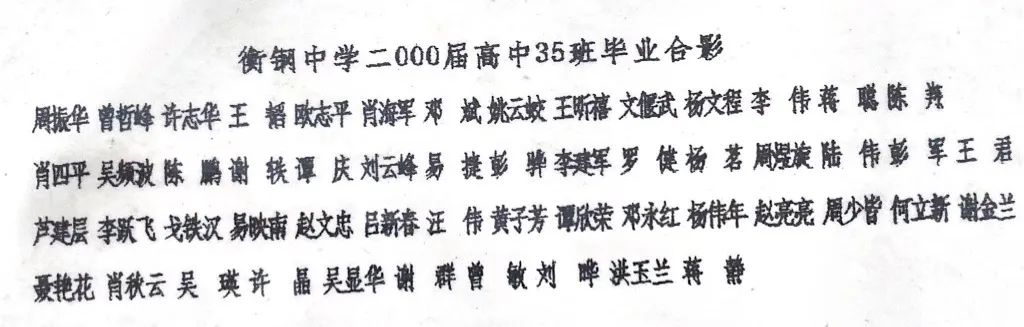 衡钢中学二000届高中35班毕业合影
周振华 曾哲峰 许志华 王 韬 欧志平 肖海军 邓 斌 姚云蛟 王昕禧 文偃武 杨文程 李 伟 蒋 聪 陈 翔
肖四平 吴频波 陈 鹏 谢 轶 谭 庆 刘云峰 易 捷 彭 骅 李建军 罗 健 杨 茗 周煜旋 陆 伟 彭 军 王 君
芦建层 李跃飞 戈铁汉 易映南 赵文忠 吕新春 汪 伟 黄子芳 谭欣荣 邓永红 杨伟年 赵亮亮 周少皆 何立新 谢金兰
聂艳花 肖秋云 吴 瑛 许 晶 吴显华 谢 群 曾 敏 刘 晔 洪玉兰 蒋 静